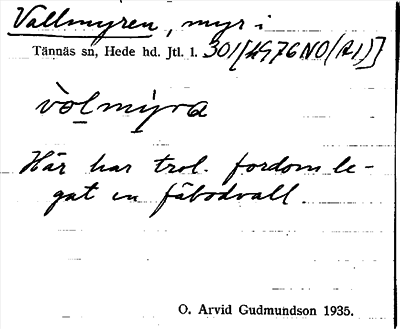 Vallmyren, myr i
Tännäs sn, Hede hd. Jtl. l. 301[HG76NO(R1)]
vòlmýra
Här har trol. fordom le-
gat en fäbodvall.
O. Arvid Gudmundson 1935.